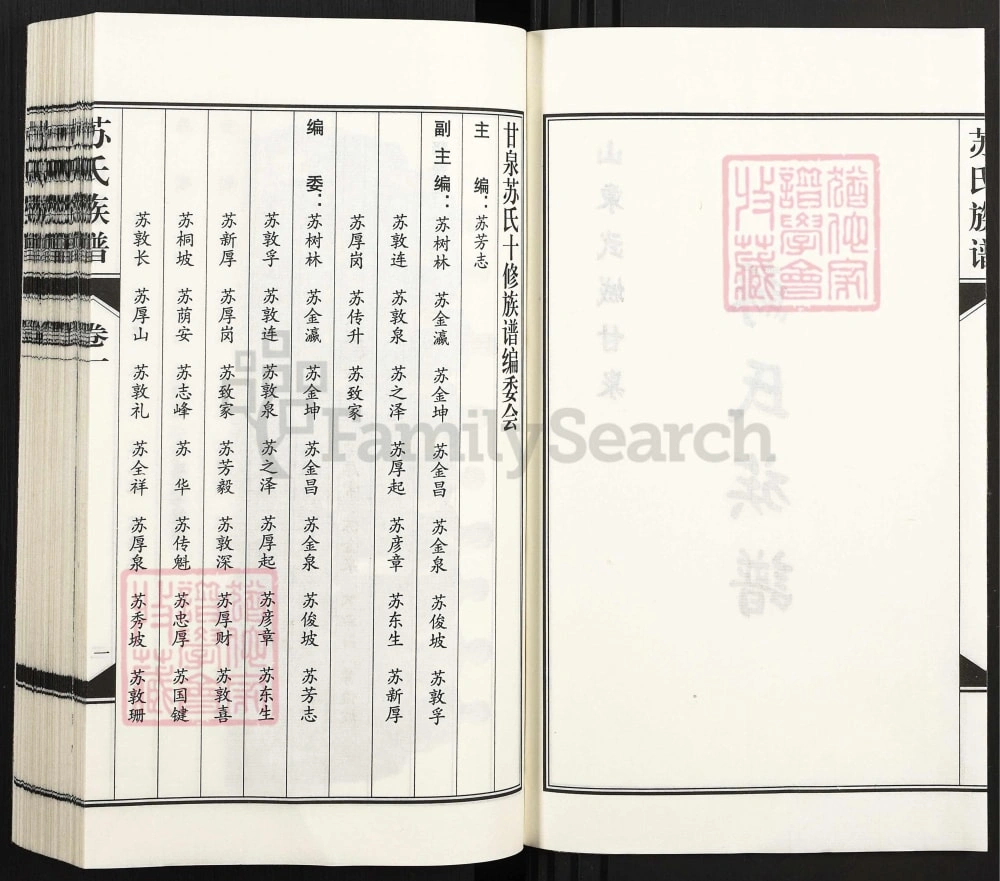 苏氏族谱
猶他家譜學會收藏
山東武城甘泉
苏氏族譜
甘泉苏氏十修族谱编委会
主编：苏芳志
副主编：苏树林 苏金瀛 苏金坤 苏金昌 苏金泉 苏俊坡 苏敦孚
苏敦连 苏敦泉 苏之泽 苏厚起 苏彦章 苏东生 苏新厚
苏厚岗 苏传升 苏致家
编委：苏树林 苏金瀛 苏金坤 苏金昌 苏金泉 苏俊坡 苏芳志
苏敦孚 苏敦连 苏敦泉 苏之泽 苏厚起 苏彦章 苏东生
苏新厚 苏厚岗 苏致家 苏芳毅 苏敦深 苏厚财 苏敦喜
苏桐坡 苏荫安 苏志峰 苏华 苏传魁 苏忠厚 苏国键
苏敦长 苏厚山 苏敦礼 苏全祥 苏厚泉 苏秀坡 苏敦珊
苏氏族谱
卷一
一
猶他家譜學會收藏
FamilySearch